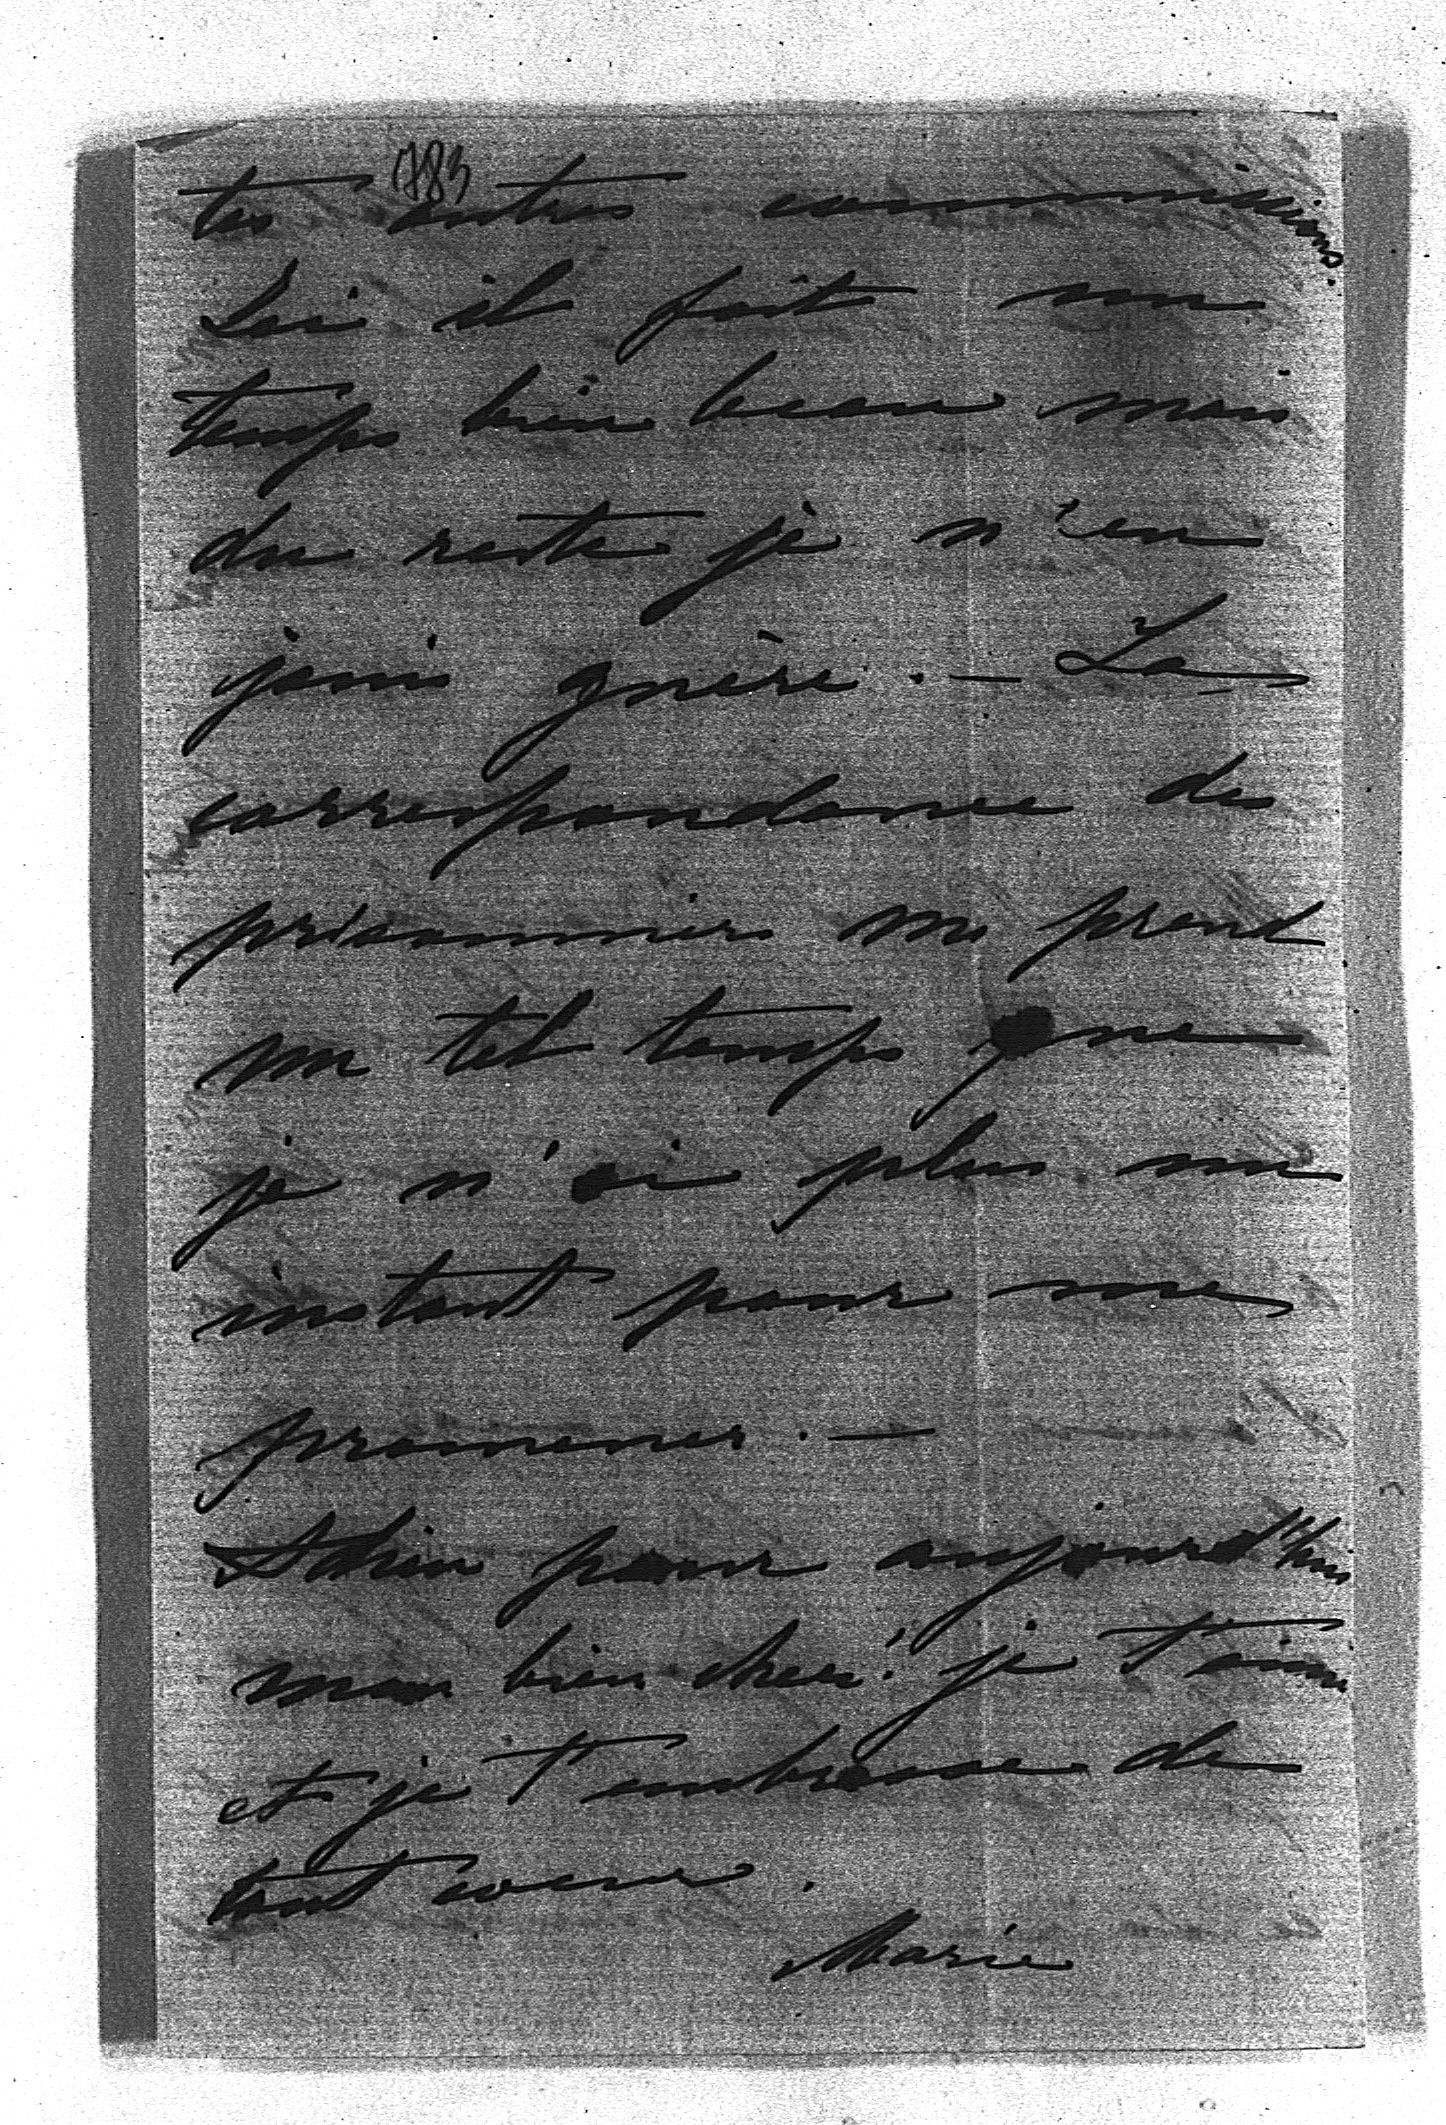 783
tes autres commissions.
Ici il fait un
temps bien beau mais
du reste je n'en
jouis guère. — La
correspondance des
prisonniers me prend
un tel temps que
je n'ai plus un
instant pour me
promener. —
Adieu pour aujourd'hui
mon bien cher! je t'aime
et je t'embrasse de
tout coeur.
Marie